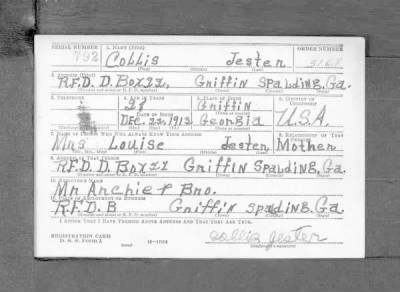 SERIAL NUMBER 1. NAME (Print) ORDER NUMBER
792 Collis Jester 3168
(First) (Middle) (Last)
2. ADDRESS (Print)
R.F.D. D. Box 22, Griffin Spalding, Ga.
3. TELEPHONE 4. AGE IN YEARS 5. PLACE OF BIRTH 6. COUNTRY OF CITIZENSHIP
28 Griffin
DATE OF BIRTH U.S.A.
Dec. 22, 1912 Georgia
7. NAME OF PERSON WHO WILL ALWAYS KNOW YOUR ADDRESS 8. RELATIONSHIP OF THAT PERSON
Mrs Louise Jester Mother
9. ADDRESS OF THAT PERSON
R.F.D. D. Box 22 Griffin Spalding, Ga.
10. EMPLOYER'S NAME
Mr Archie & Bro.
11. PLACE OF EMPLOYMENT OR BUSINESS
R.F.D. B Griffin Spalding, Ga.
I AFFIRM THAT I HAVE VERIFIED ABOVE ANSWERS AND THAT THEY ARE TRUE.
REGISTRATION CARD
D. S. S. Form 1 (over) 16-17105 Collis Jester
(Registrant's signature)